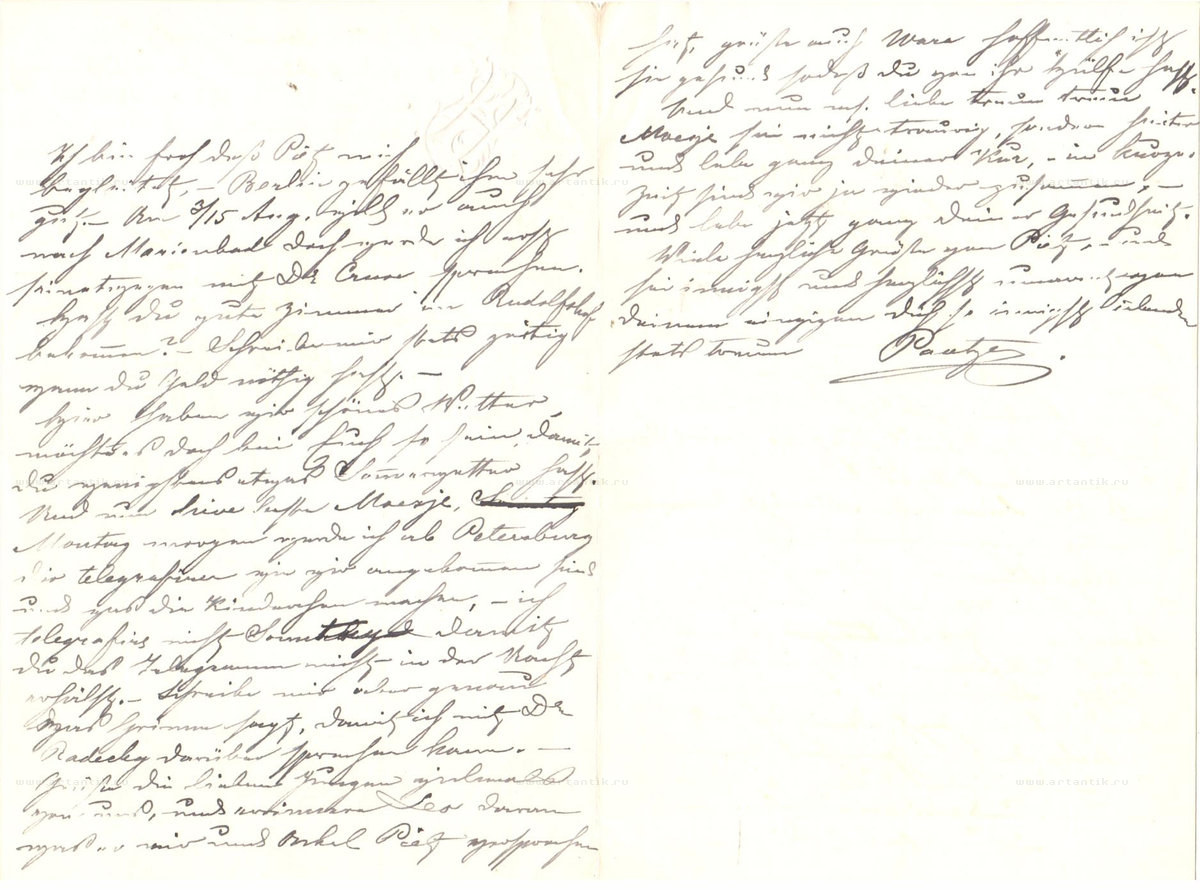 Ich bin froh daß Pöt mich
begleitet, – Berlin gefällt ihm sehr
gut. – Am 3/15 Aug. will er auch
nach Marienbad doch werde ich erst
seinetwegen mit Dr sprechen.
Hast du gute Zimmer im Rudolfshof
bekommen? – Schreibe mir stets zeitig
wenn du Geld nöthig hast. –
Hier haben wir schönes Wetter,
möchte es doch bei Euch so sein, damit
du wenigstens etwas Sommerwetter hast.
Und nun beste Moesje,
Montag morgen werde ich ab Petersburg
dir telegrafiren wie wir angekommen sind
und was die Kinderchen machen, – ich
telegrafire nicht damit
du das Telegramm nicht in der Nacht
erhälst. – Schreibe mir aber genau
was sagt, damit ich mit Dr
Radecky darüber sprechen kann. –
Grüße die lieben Jungen vielmals
von uns, und erinnere Leo daran
was er mir und Onkel Pöt versprochen
hat, grüße auch Wara hoffentlich ist
sie gesund sodaß du von ihr Hülfe hast.
Und nun liebe
Moesje sei nicht traurig, sondern heiter
und lebe ganz deiner Kur, – in kurzer
Zeit sind wir ja wieder zusammen, –
und lebe jetzt ganz deiner Gesundheit.
Viele herzliche Grüße von Pöt, – und
sei innigst und herzlichst umarmt von
deinem einzigen dich so innigst liebenden
stets treuen Paatze.
www.artantik.ru